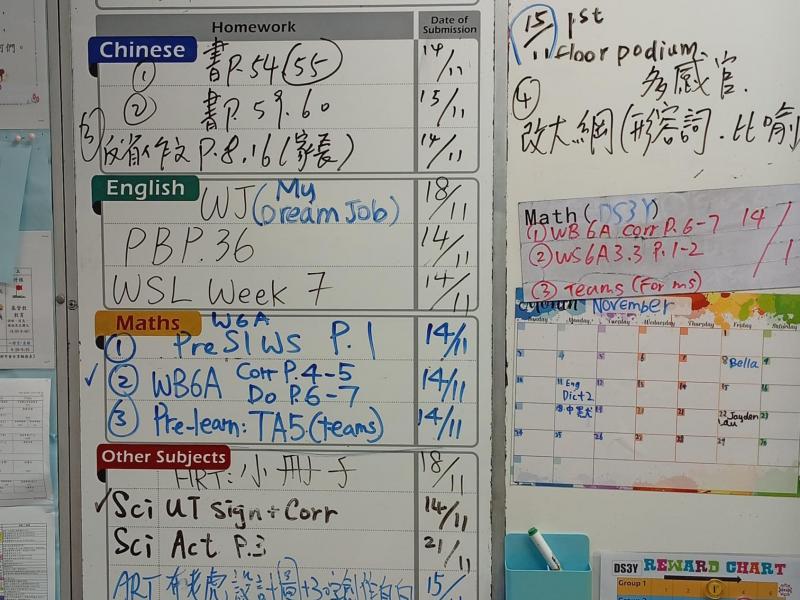 Homework
Date of Submission
Chinese
① 書P.54 55 14/11
② 書P.59.60 15/11
③ 反省作文 P.8,16 (家長) 14/11
English
WJ (My Dream Job) 18/11
PB P.36 14/11
WSL Week 7 14/11
Maths W6A
① Pre S1 WS P.1 14/11
✓ ② WB6A Corr P.4-5
Do P.6-7 14/11
③ Pre-learn: TA5.(teams) 14/11
Other Subjects
HRT: 小冊子 18/11
✓ Sci UT sign + Corr 14/11
Sci Act P.3 21/11
ART 15/11
15/11 1st
floor podium
多感官.
④
改大綱(形容詞.比喻
Math (DS3Y)
① WB 6A Corr P.6-7 14/1
② WS6A3.3 P.1-2
③ Teams (Forms)
November
Monday Tuesday Wednesday Thursday Friday Saturday
8 Bella
11 Eng
Dict 2
18
22 Jayden
Lau 23
DS3Y REWARD CHART
Group 1
Group 2